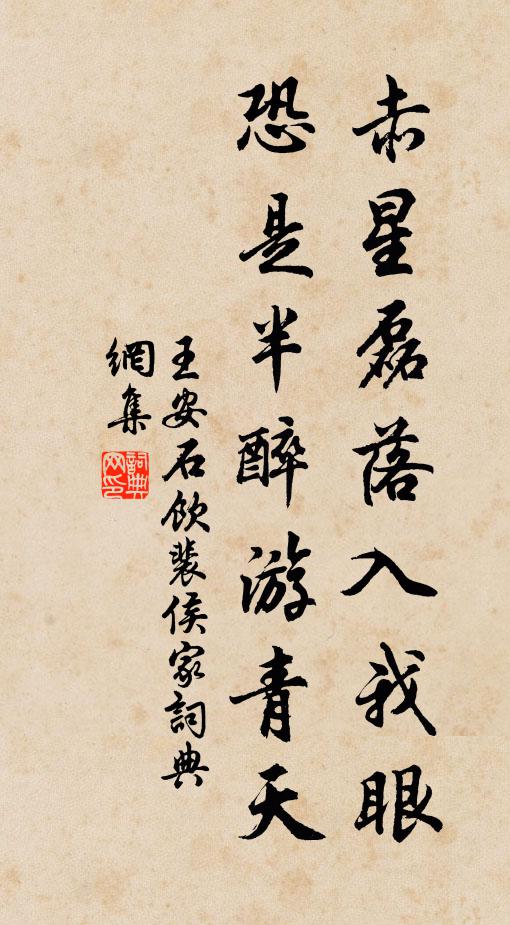 赤星磊落入我眼
恐是半醉游青天
王安石飲裴侯家詞典
網集
詞典
网印